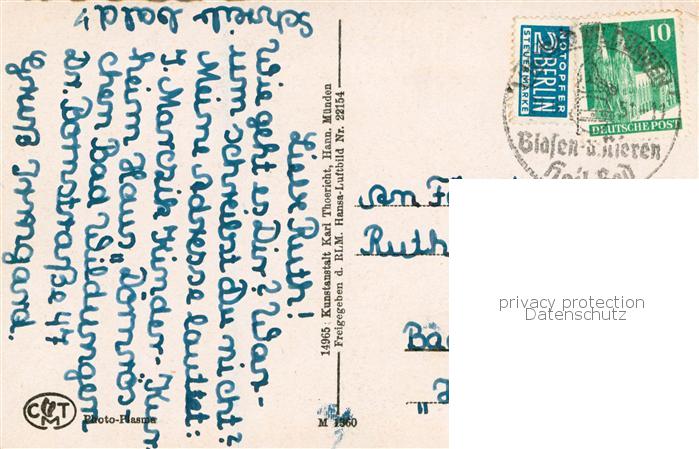 Liebe Ruth!
Wie geht es Dir? War-
um schreibst Du nicht?
Meine Adresse lautet:
J. Kinder-Kur
heim Haus "Dornrös
chen Bad Wildungen
Dr. Bornstraße 47
Gruß Irmgard.
Schreib bald
14965: Kunstanstalt Karl Thoericht, Hann. Münden
Freigegeben d. RLM. Hansa-Luftbild Nr. 22154
M 1360
CTM
Photo-Plasma
NOTOPFER
2 BERLIN
STEUERMARKE
10
DEUTSCHE POST
Blasen-u.Nieren
Heil-Bad
An
Ruth
privacy protection
Datenschutz